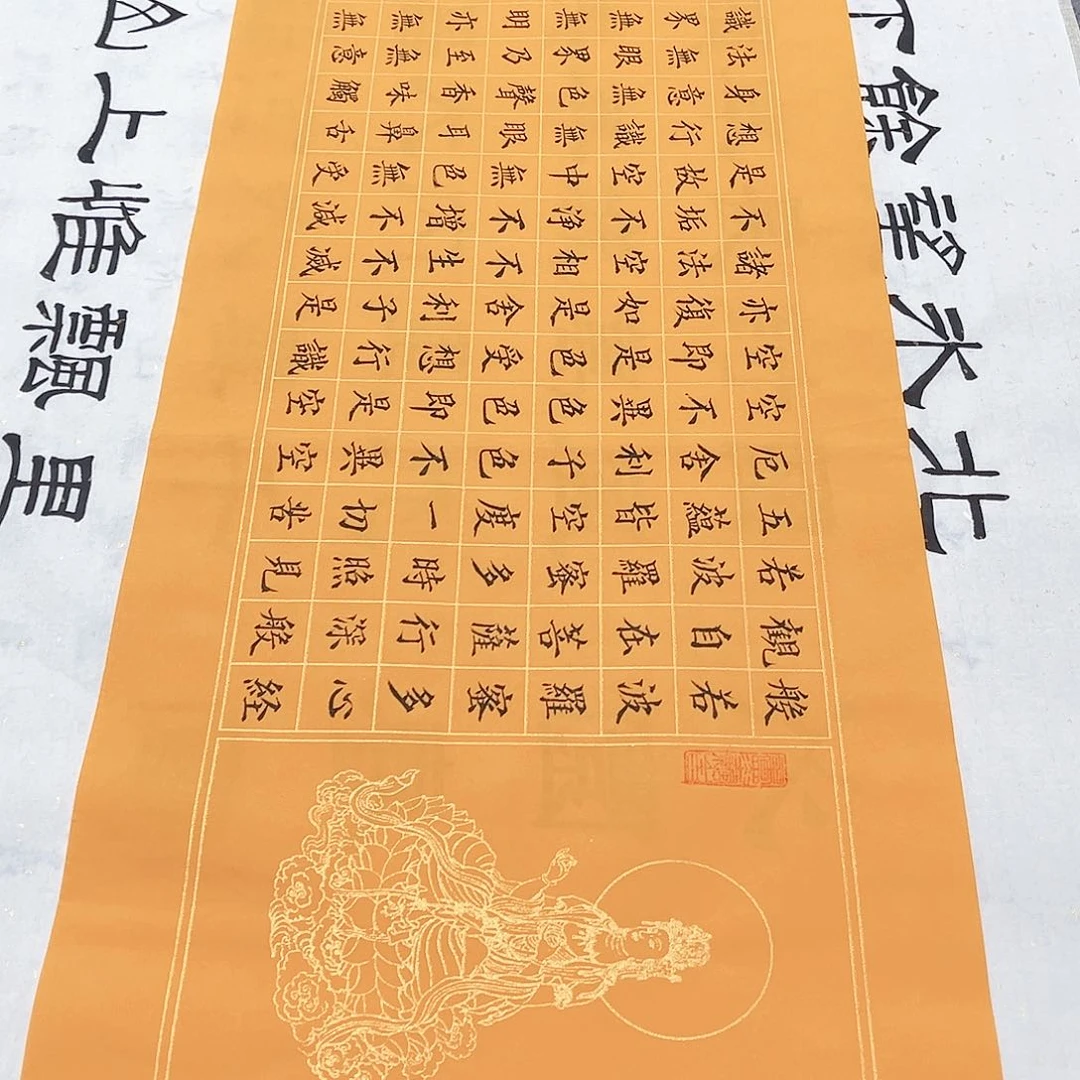 般若波羅蜜多心経
觀自在菩薩行深般
若波羅蜜多時照見
五蘊皆空度一切苦
厄舍利子色不異空
空不異色色即是空
空即是色受想行識
亦復如是舍利子是
諸法空相不生不滅
不垢不淨不增不減
是故空中無色無受
想行識無眼耳鼻舌
身意無色聲香味觸
法無眼界乃至無意
識界無無明亦無無
餘望北
上惟飄里